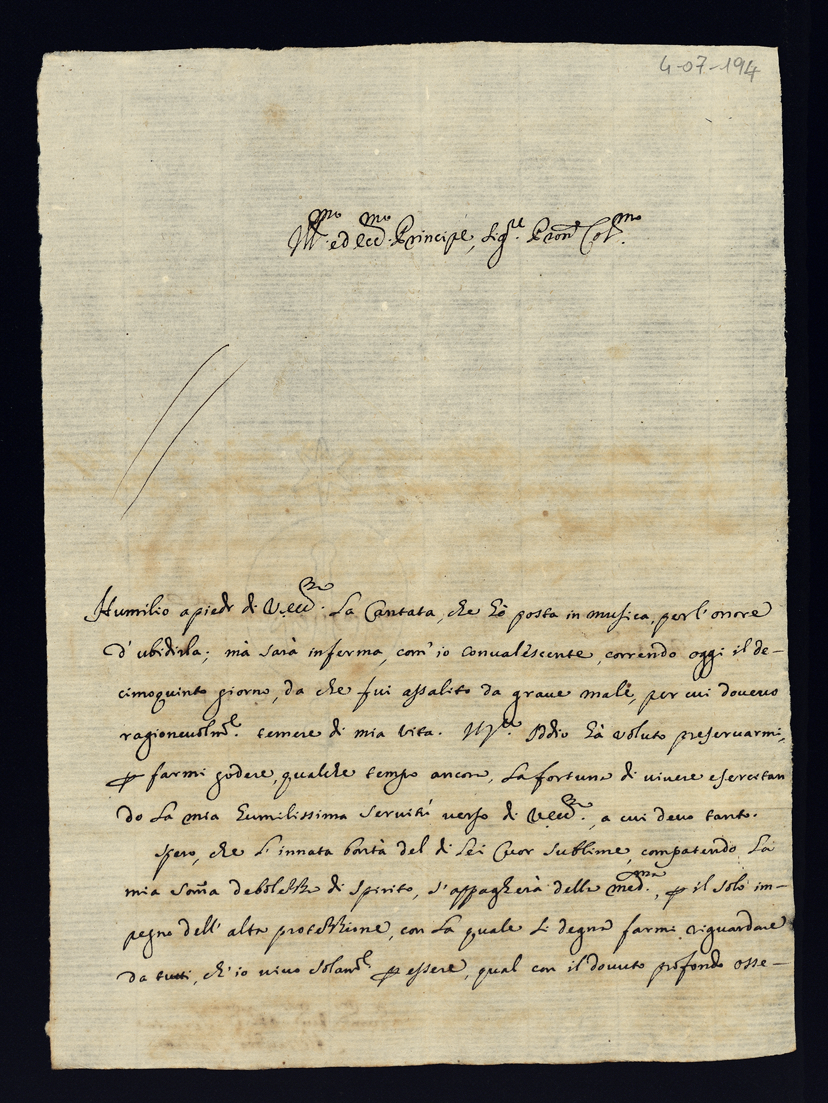 4-07-194
Ill.mo ed Ecc.mo Principe, Sig.re Pron Col.mo
Humilio a piedi di V. Ecc.za La Cantata, che hò posta in musica, per l'onore
d'ubidirla; mà sarà inferma, com'io convalescente, correndo oggi il de-
cimoquinto giorno, da che fui assalito da graue male, per cui doueuo
ragioneuolm.te temere di mia Vita. Iddio hà voluto preseruarmi,
per farmi godere, qualche tempo ancora, La fortuna di viuere esercitan
do La mia humilissima seruitù verso di V. Ecc.za, a cui deuo tanto.
Spero, che L'innata bontà del di Lei Cuor sublime, compatendo La
mia somma debolezza di Spirito, s'appagherà della med.ma, per il solo im-
pegno dell'alta protezzione, con La quale si degna farmi riguardare
da tutti, ch'io viuo solam.te per essere, qual con il douuto profondo osse-